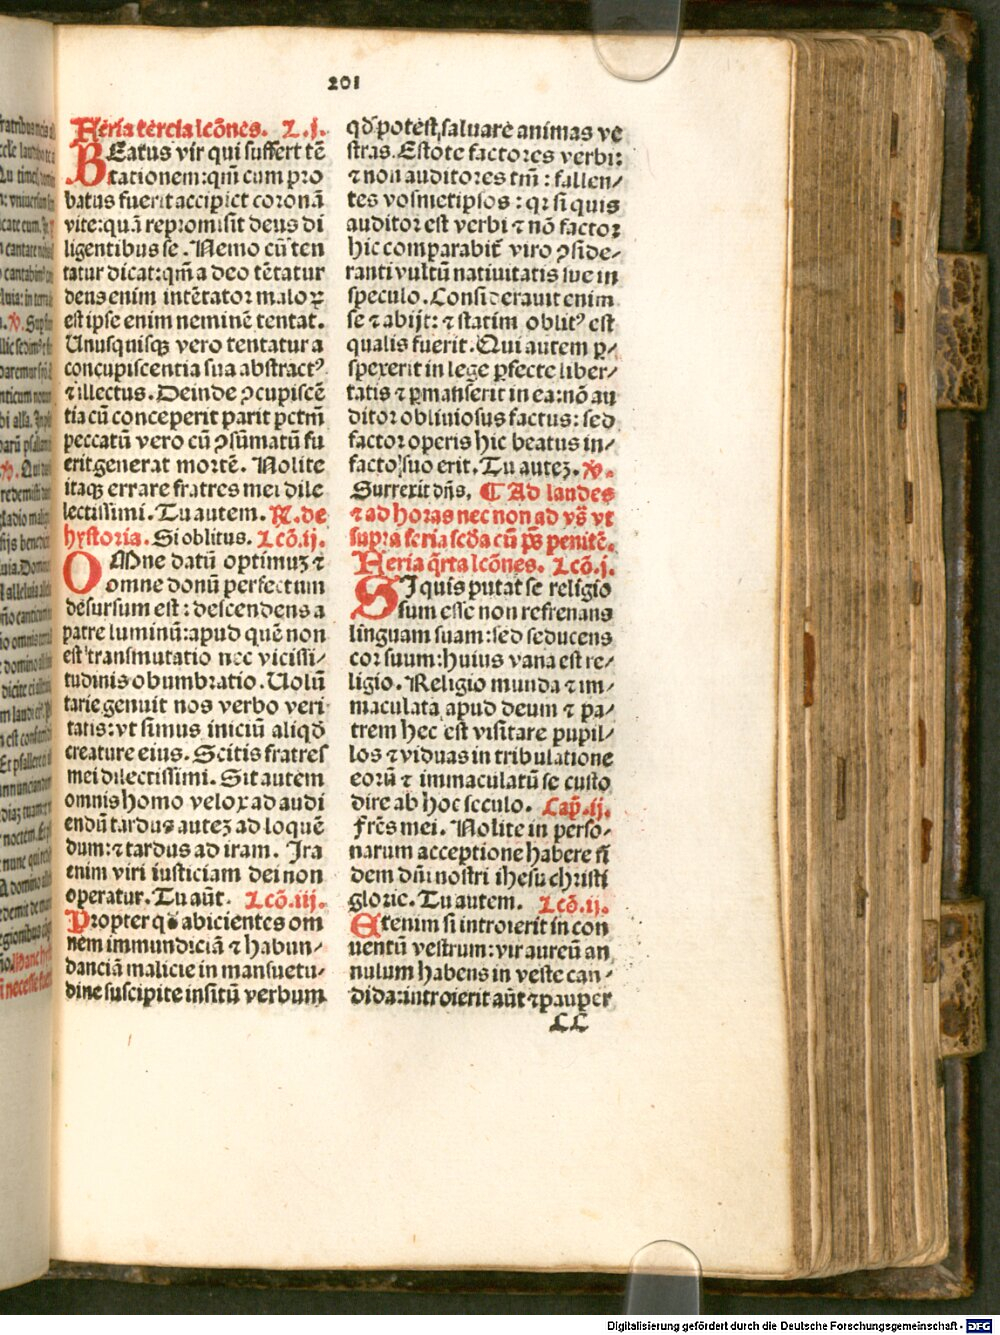 201
Feria tercia lcões. L.j.
BEatus vir qui suffert tē
tationem:qm̄ cum pro
batus fuerit accipiet coronā
vite:quā repromisit deus di
ligentibus se. Nemo cū ten
tatur dicat:qm̄ a deo tētatur
deus enim intētator maloꝝ
est ipse enim neminē tentat.
Unusquisqꝫ vero tentatur a
concupiscentia sua abstractꝰ
⁊ illectus. Deinde ꝯcupiscē
tia cū conceperit parit pctm̄
peccatū vero cū ꝯsūmatū fu
erit generat mortē. Nolite
itaqꝫ errare fratres mei dile
lectissimi. Tu autem. R. de
hystoria. Si oblitus. Lcō.ij.
OMne datū optimuꝫ ⁊
omne donū perfectum
desursum est: descendens a
patre luminū:apud quē non
est transmutatio nec vicissi⸗
tudinis obumbratio. Uolū
tarie genuit nos verbo veri
tatis:vt simus iniciū aliqđ
creature eius. Scitis fratres
mei dilectissimi. Sit autem
omnis homo velox ad audi
endū tardus auteꝫ ad loquē
dum:⁊ tardus ad iram. Ira
enim viri iusticiam dei non
operatur. Tu aūt. Lcō.iij.
Propter qđ abicientes om
nem immundiciā ⁊ habun⸗
danciā malicie in mansuetu⸗
dine suscipite insitū verbum
qđ potest saluare animas ve
stras. Estote factores verbi:
⁊ non auditores tm̄: fallen⸗
tes vosmetipsos: qꝛ si quis
auditor est verbi ⁊ nō factor
hic comparabit̄ viro ꝯside⸗
ranti vultū natiuitatis sue in
speculo. Considerauit enim
se ⁊ abijt: ⁊ statim oblitꝰ est
qualis fuerit. Qui autem ꝑ⸗
spexerit in lege ꝑfecte liber⸗
tatis ⁊ ꝑmanserit in ea:nō au
ditor obliuiosus factus: sed
factor operis hic beatus in⸗
facto suo erit. Tu auteꝫ. ℣.
Surrexit dn̄s. ¶ Ad laudes
⁊ ad horas nec non ad vs̄ vt
supra feria scđa cū p̄s penitē.
Feria q̄rta lcōnes. Lcō.j.
SI quis putat se religio
sum esse non refrenans
linguam suam:sed seducens
cor suum:huius vana est re⸗
ligio. Religio munda ⁊ im⸗
maculata apud deum ⁊ pa⸗
trem hec est visitare pupil⸗
los ⁊ viduas in tribulatione
eorū ⁊ immaculatū se custo
dire ab hoc seculo. Cap̄.ij.
Fr̄es mei. Nolite in perso⸗
narum acceptione habere fi
dem dn̄i nostri ihesu christi
glorie. Tu autem. Lcō.ij.
Etenim si introierit in con
uentū vestrum:vir aureū an
nulum habens in veste can⸗
dida:introierit aūt ⁊ pauper
CC
Digitalisierung gefördert durch die Deutsche Forschungsgemeinschaft - DFG